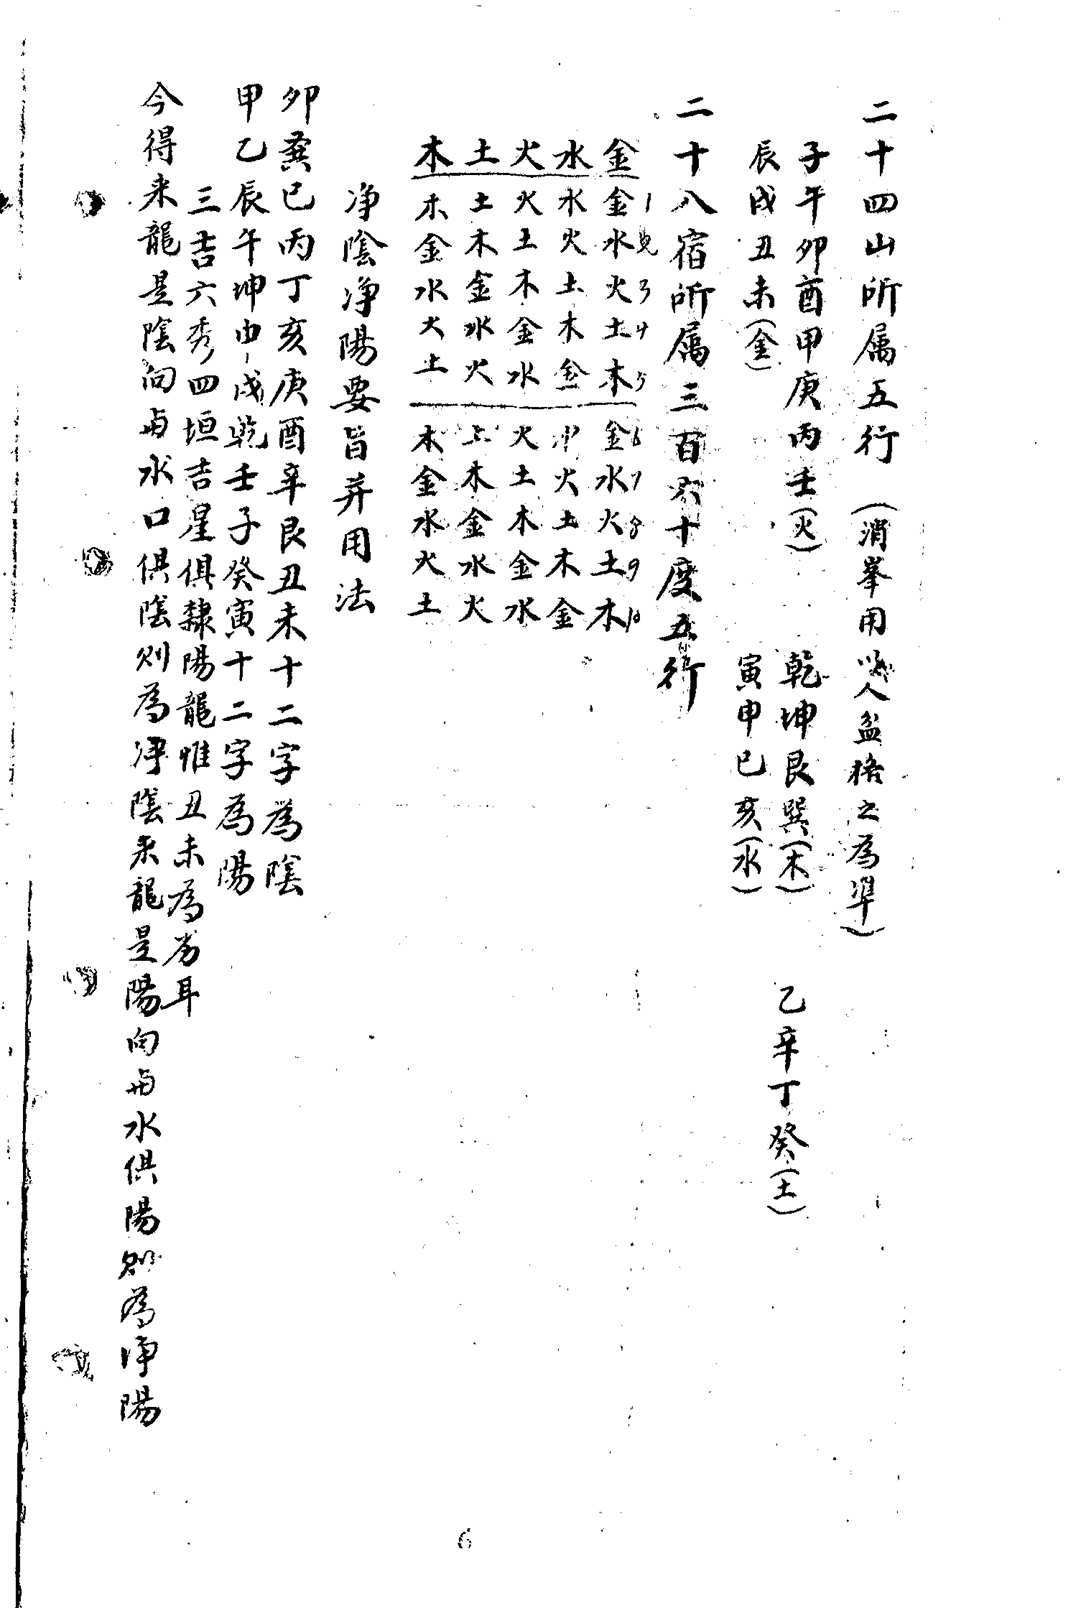 二十四山所属五行（消峯用以人盆格之為準）
子午卯酉甲庚丙壬（火）　乾坤艮巽（木）　乙辛丁癸（土）
辰戌丑未（金）　寅申巳亥（水）
二十八宿所属三百六十度五行
1 3 4 5 6 7 8 9 10
金 金水火土木 金水火土木
水 水火土木金 水火土木金
火 火土木金水 火土木金水
土 土木金水火 土木金水火
木 木金水火土 木金水火土
净陰净陽要旨并用法
卯巽巳丙丁亥庚酉辛艮丑未十二字為陰
甲乙辰午坤申戌乾壬子癸寅十二字為陽
三吉六秀四垣吉星俱隸陽龍惟丑未為劣耳
今得来龍是陰向与水口俱陰则為净陰来龍是陽向与水俱陽则為净陽
6